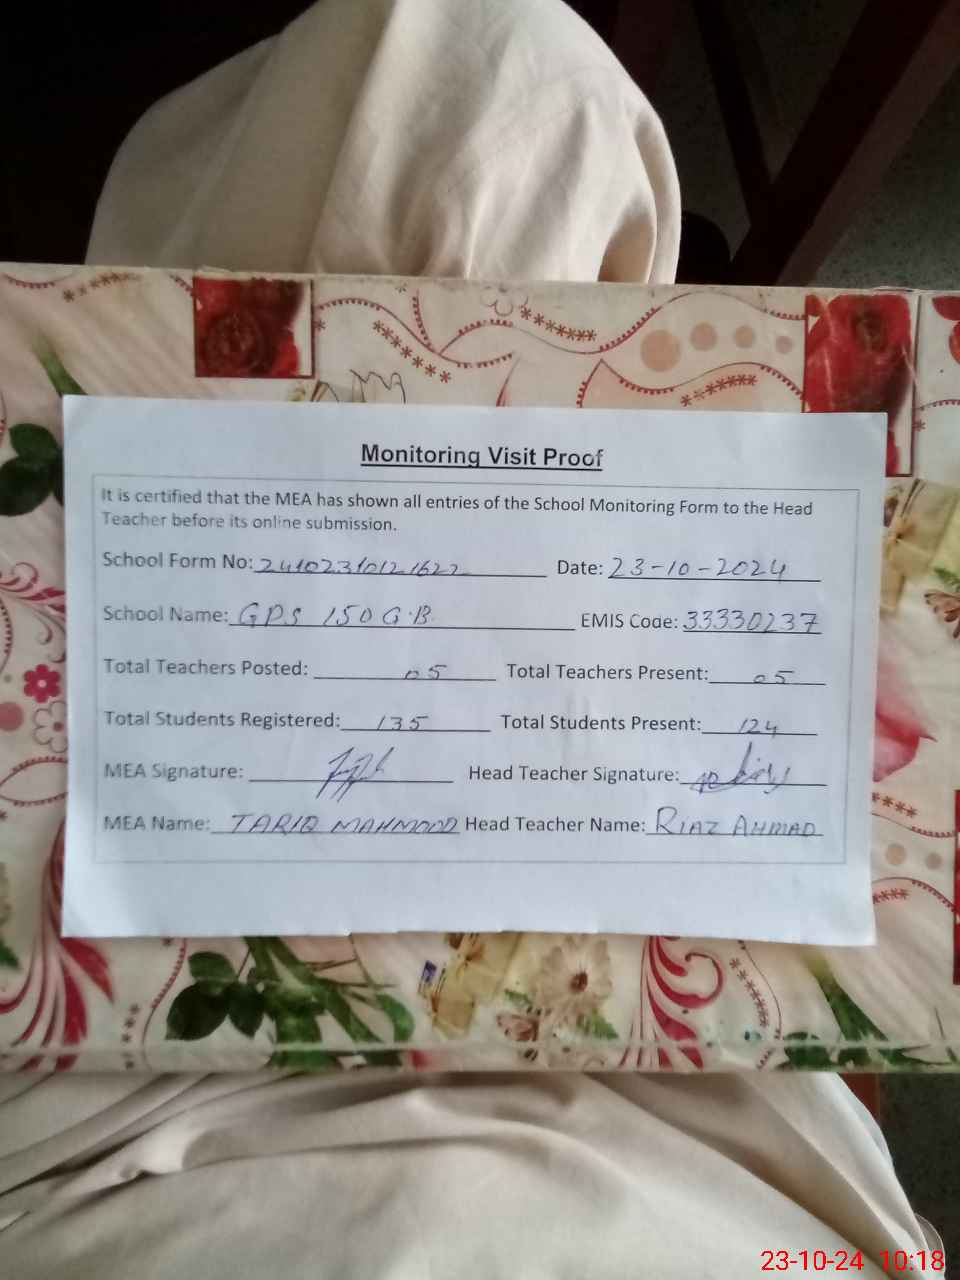 Monitoring Visit Proof
It is certified that the MEA has shown all entries of the School Monitoring Form to the Head
Teacher before its online submission.
School Form No: 24102310121622 Date: 23-10-2024
School Name: GPS 150 G.B. EMIS Code: 33330237
Total Teachers Posted: 05 Total Teachers Present: 05
Total Students Registered: 135 Total Students Present: 124
MEA Signature: Head Teacher Signature:
MEA Name: TARIQ MAHMOOD Head Teacher Name: RIAZ AHMAD
23-10-24 10:18